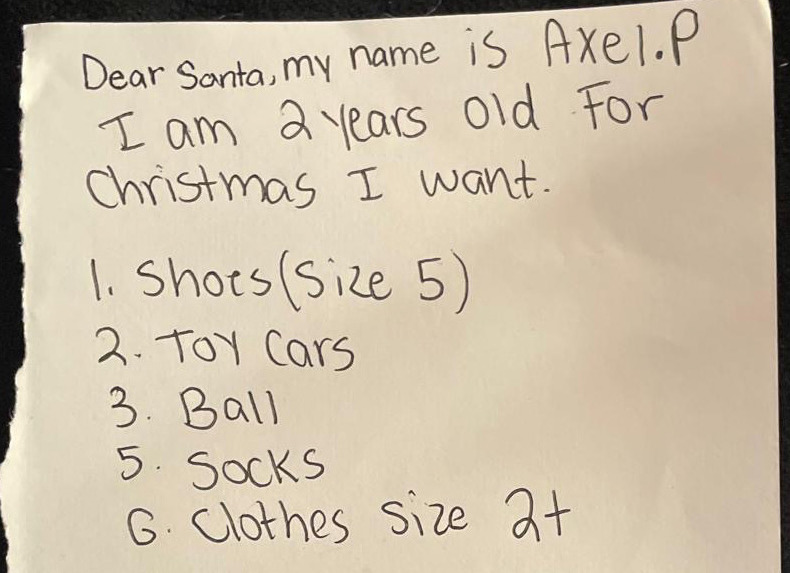 Dear Santa, my name is Axel.P
I am 2 years old For
Christmas I want.
1. Shoes (Size 5)
2. Toy Cars
3. Ball
5. Socks
6. Clothes Size 2t